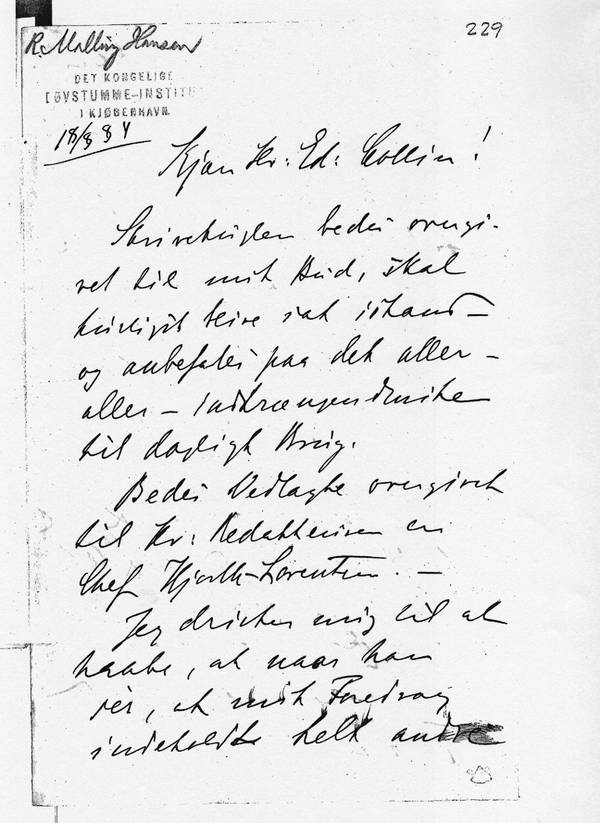 229
R. Malling Hansen
DET KONGELIGE
DØVSTUMME-INSTIT
I KJØBENHAVN.
18/8 84
Kjære Hr: Ed: Collin!
Skrivekuglen bedes overgi-
vet til mit Bud, skal
hurtigst blive sat istand –
og anbefales paa det aller –
aller – indtrængendste
til dagligt Brug.
Bedes Vedlagte overgivet
til Hr: Redakteuren en
Chef Hjorth-Lorentzen. –
Jeg drister mig til at
haabe, at naar han
ser, at mit Foredrag
indeholdt helt andre